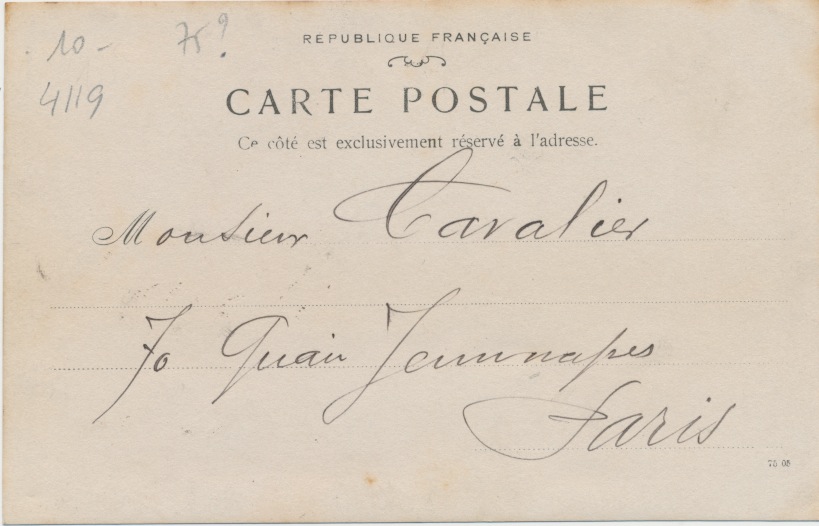 10 - 75?
4119
REPUBLIQUE FRANÇAISE
CARTE POSTALE
Ce côté est exclusivement réservé à l'adresse.
Monsieur Cavalier
70 Quai Jemmapes
Paris
75 05